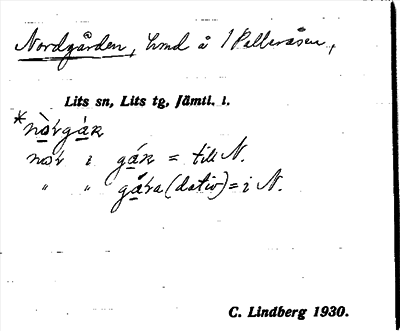 Nordgården, hmd å 1 Kallsråsen,
Lits sn, Lits tg, Jämtl. l.
*nòrgáṛ
nór i gáṛ = till N.
" " gára (dativ) = i N.
C. Lindberg 1930.